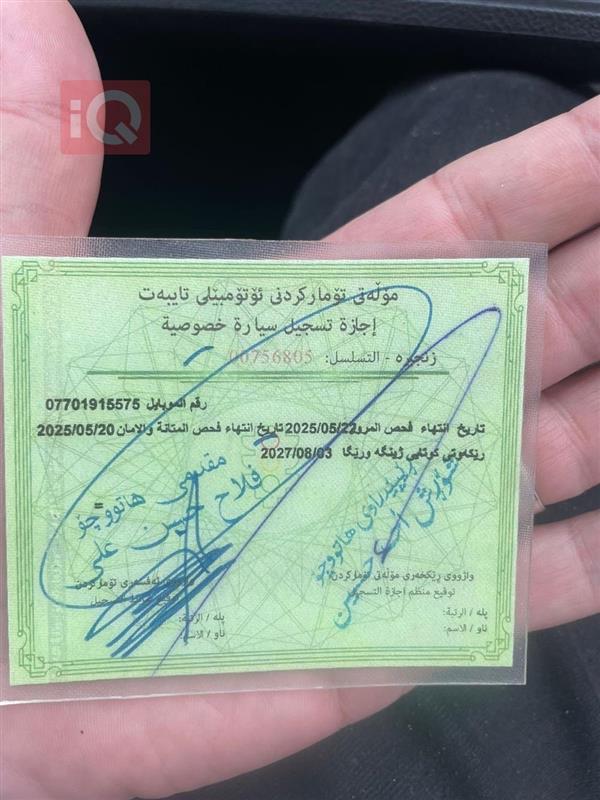 iQ
مۆڵەتی تۆمارکردنی ئۆتۆمبێلی تایبەت
إجازة تسجيل سيارة خصوصية
زنجیرە - التسلسل: 00756805
رقم الموبايل 07701915575
تاريخ انتهاء فحص المرو2025/05/22 تاريخ انتهاء فحص المتانة والامان 2025/05/20
ڕێکەوتی کۆتایی ژینگە وڕێگا 2027/08/03
=
مقدمی هاتووچۆ
فلاح حسن علي
هاتووچۆ
شۆڕش
واژووی ڕێکخەری مۆڵەتی تۆمارکردن
توقيع منظم اجازة التسجيل
پلە / الرتبة:
ناو / الاسم:
تۆمارکردن
التسجيل
پلە / الرتبة:
ناو / الاسم: